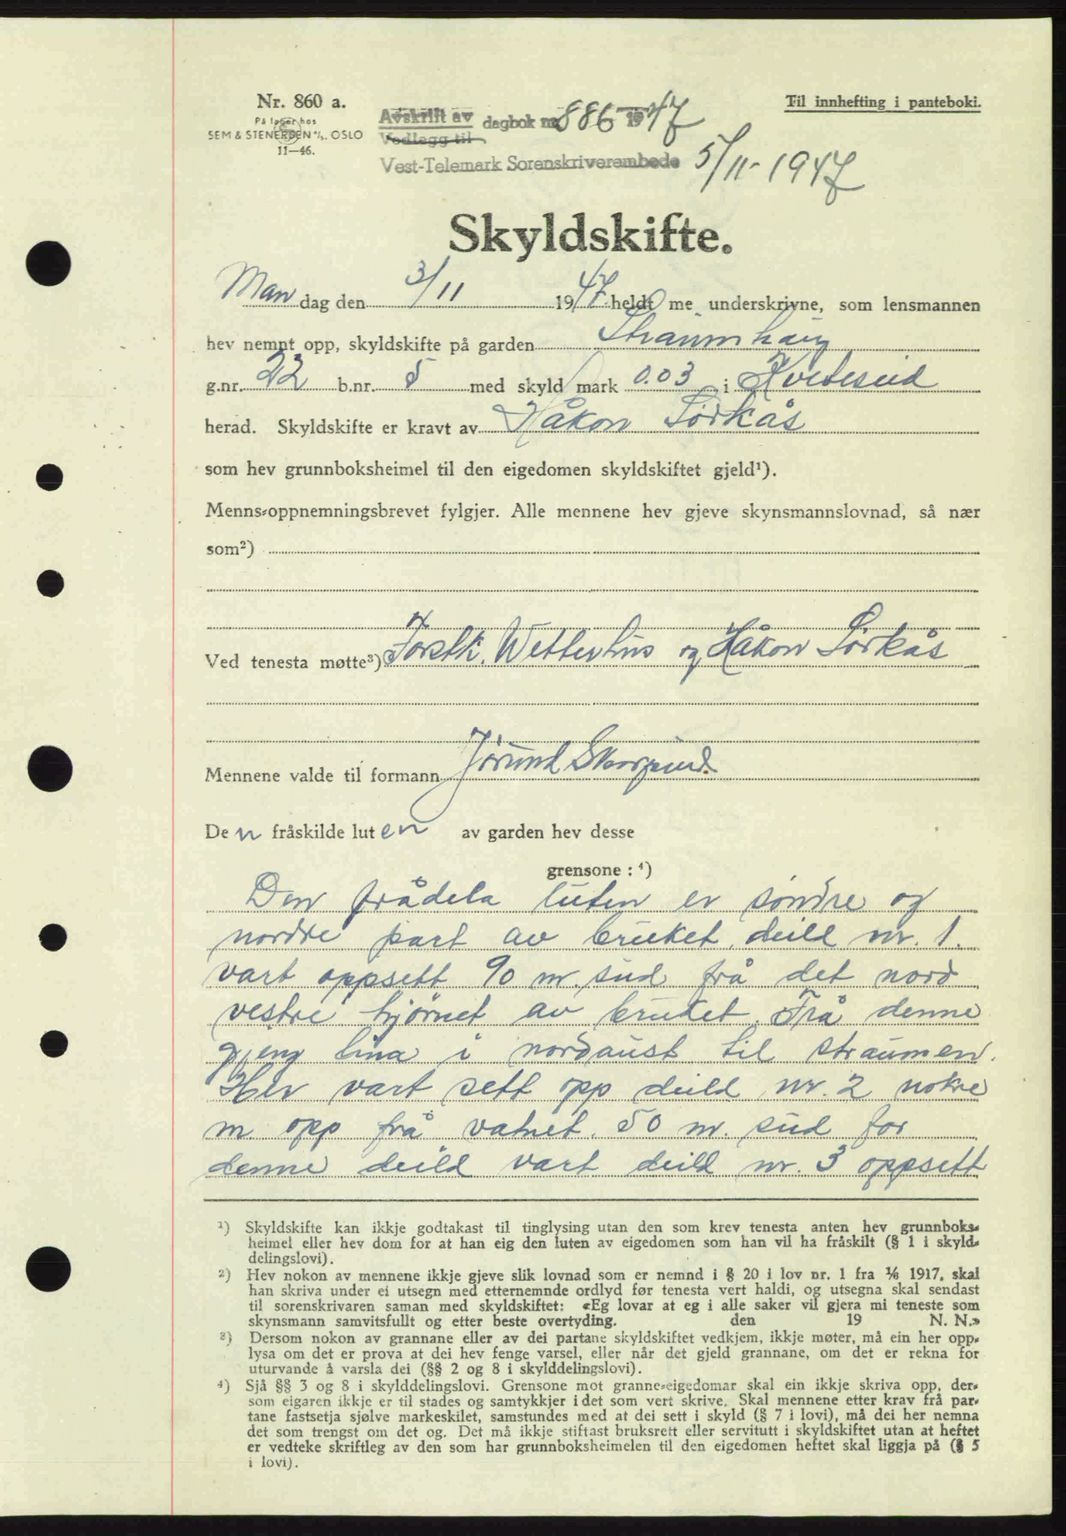 Nr. 860 a.
På lager hos
SEM & STENERSEN A/S. OSLO
11—46.
Avskrift av
Vedlegg til
dagbok nr. 886 1947
Vest-Telemark Sorenskriverembede 5/11-1947
Til innhefting i panteboki.
Skyldskifte.
Man dag den 3/11 1947 heldt me underskrivne, som lensmannen
hev nemnt opp, skyldskifte på garden Straumhaug
g.nr. 22 b.nr. 5 med skyld mark 0.03 i Kviteseid
herad. Skyldskifte er kravt av Håkon Sørkås
som hev grunnboksheimel til den eigedomen skyldskiftet gjeld¹).
Menns-oppnemningsbrevet fylgjer. Alle mennene hev gjeve skynsmannslovnad, så nær
som²)
Ved tenesta møtte³) Forstk. Wetterhus og Håkon Sørkås
Mennene valde til formann Jørund
De n fråskilde lut en av garden hev desse
grensone: ⁴)
Den frådela luten er søndre og
nordre part av bruket, deild nr. 1.
vart oppsett 90 m. sud frå det nord
vestre hjørnet av bruket. Frå denne
gjeng lina i nordaust til straumen.
Her vart sett opp deild nr. 2 nokre
m opp frå vatnet. 50 m. sud for
denne deild vart deild nr. 3 oppsett
¹) Skyldskifte kan ikkje godtakast til tinglysing utan den som krev tenesta anten hev grunnboks-
heimel eller hev dom for at han eig den luten av eigedomen som han vil ha fråskilt (§ 1 i skyld-
delingslovi).
²) Hev nokon av mennene ikkje gjeve slik lovnad som er nemnd i § 20 i lov nr. 1 fra 1/6 1917, skal
han skriva under ei utsegn med etternemnde ordlyd før tenesta vert haldi, og utsegna skal sendast
til sorenskrivaren saman med skyldskiftet: «Eg lovar at eg i alle saker vil gjera mi teneste som
skynsmann samvitsfullt og etter beste overtyding. den 19 N. N.»
³) Dersom nokon av grannane eller av dei partane skyldskiftet vedkjem, ikkje møter, må ein her opp-
lysa om det er prova at dei hev fenge varsel, eller når det gjeld grannane, om det er rekna for
uturvande å varsla dei (§§ 2 og 8 i skylddelingslovi).
⁴) Sjå §§ 3 og 8 i skylddelingslovi. Grensone mot granne-eigedomar skal ein ikkje skriva opp, der-
som eigaren ikkje er til stades og samtykkjer i det som vert skrive. Skal mennene etter krav frå par-
tane fastsetja sjølve markeskilet, samstundes med at dei sett i skyld (§ 7 i lovi), må dei her nemna
det som trengst om det og. Det må ikkje stiftast bruksrett eller servitutt i skyldskiftet utan at heftet
er vedteke skriftleg av den som har grunnboksheimelen til den eigedomen heftet skal liggja på (§ 5
i lovi).